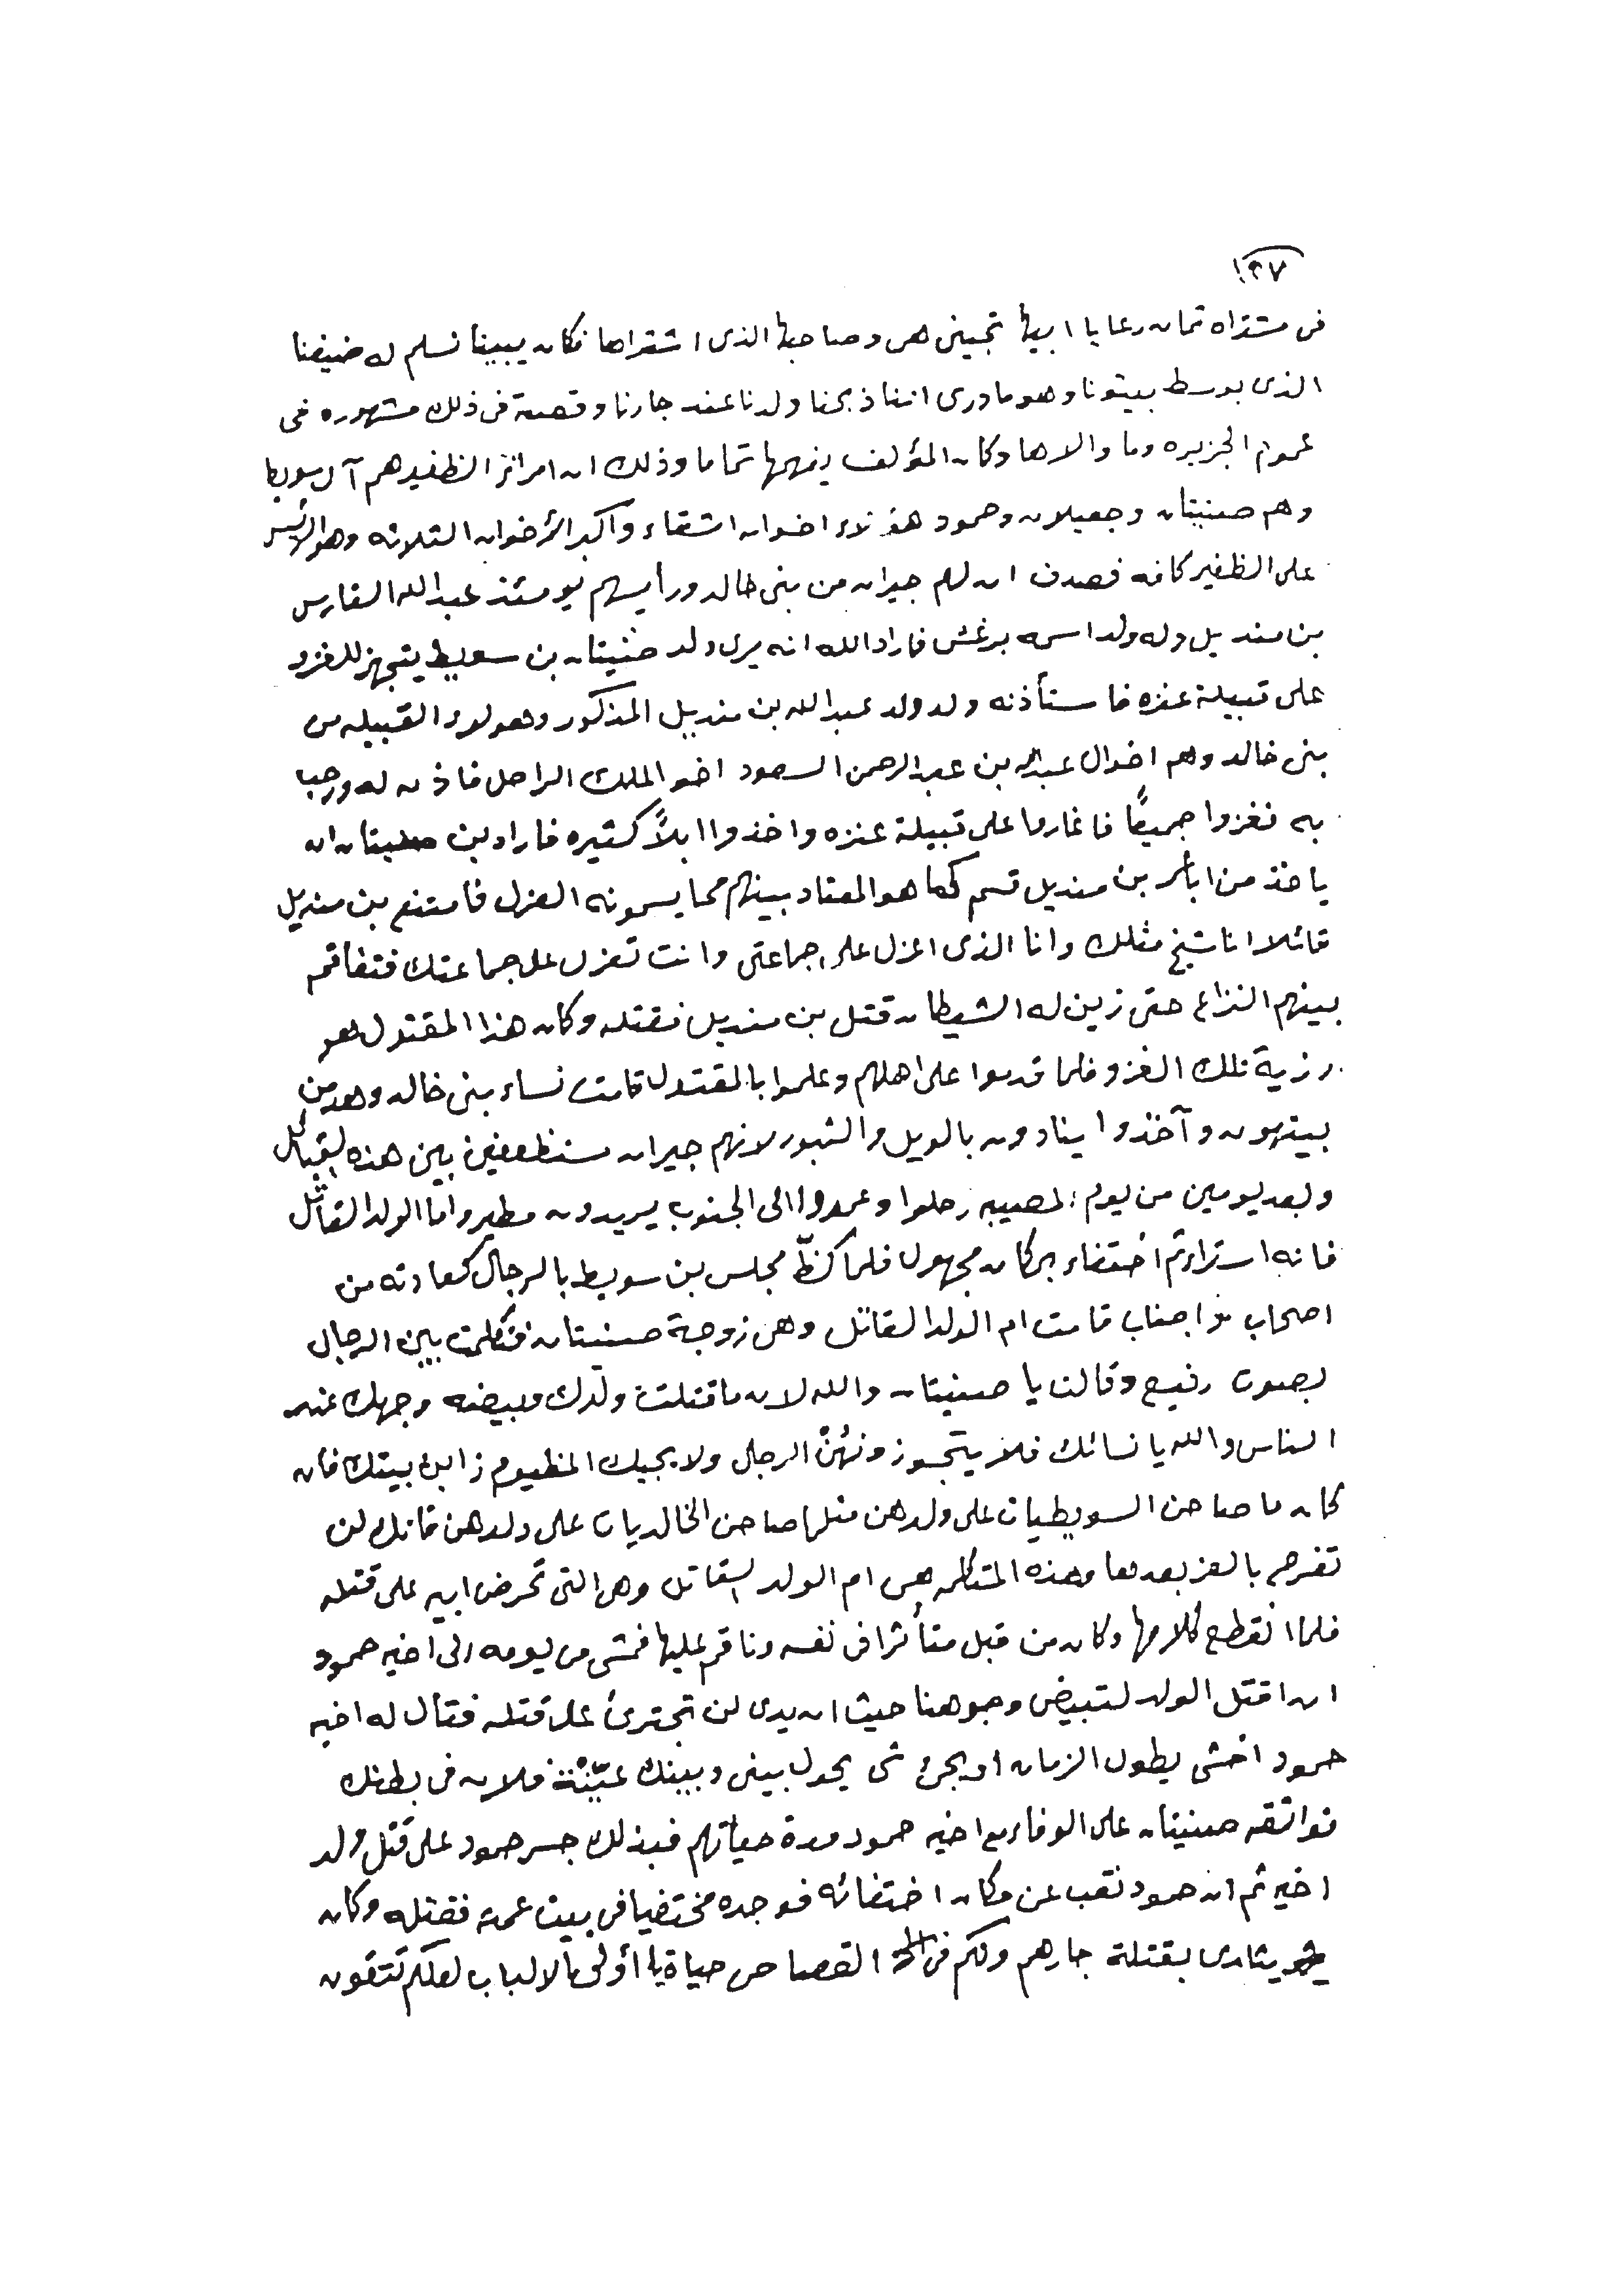 ١٢٧
في مشتراه تمان رعايا ابيها تجيني هي وصاحبها الذي اشتراها فكان يبينا نسلم له ضيفنا
الذي بوسط بيتونا وهو مادري اننا ذبحنا ولدنا عند جارنا وقصة في ذلك مشهوره في
عموم الجزيره وما والاها وكان المؤلف يفهمها تماما وذلك ان امرائز الظفير هم آل سويط
وهم صنيتان وجعيلان وحمود هؤلاء اخوان اشقاء واكبر الأخوان الثلاثه وهو الرئيس
على الظفير كافه فصدف ان لهم جيران من بني خالد ورأيسهم يومئذ عبدالله الفارس
بن منديل وله ولد اسمه برغش فاراد الله انه يرى ولد صنيتان بن سويط يتجهز للغزو
على قبيلة عنزه فاستأذنه ولد ولد عبدالله بن منديل المذكور وهولاء القبيله من
بني خالد وهم اخوال عبدالله بن عبدالرحمن السعود اخو الملك الراحل فاذن له ورحب
به فغزوا جميعًا فاغاروا على قبيلة عنزه واخذوا ابلاً كثيره فاراد بن صنيتان ان
ياخذ من اباعر بن منديل قسم كما هو المعتاد بينهم مما يسمونه العزل فامتنع بن منديل
قائلا انا شيخ مثلك وانا الذي اعزل على جماعتي وانت تعزل على جماعتك فتفاقم
بينهم النزاع حتى زين له الشيطان قتل بن منديل فقتله وكان هذا المقتول هو
رزية تلك الغزو فلما قدموا على اهلهم وعلموا بالمقتول قامت نساء بني خالد وهدمن
بيتهون وآخذوا ينادون بالويل والثبور لانهم جيران مستظعفين بين هذه القبائل
وبعد يومين من يوم المصيبه رحلوا وعمدوا الى الجنوب يريدون مطير واما الولد القاتل
فانه استراء ثم أختفاء بمكان مجهول فلما كظّ مجلس بن سويط بالرجال كعادته من
اصحاب واجناب قامت ام الولد القاتل وهي زوجة صنيتان فتكلمت بين الرجال
بصوت رفيع وقالت يا صنيتان والله لان ماقتلت ولدك وبيضه وجهك عند
الناس والله يا نسائك فلا يتجوزونهن الرجال ولا يجيك المظيوم زابن بيتك فان
كان ما صاحن السويطيات على ولدهن مثلما صاحن الخالديات على ولدهن فانك لن
تفرح بالعز بعدها وهذه المتكلمه هي ام الولد القاتل وهي التي تحرض ابيه على قتله
فلما انقطع كلامها وكان من قبل متأثرا في نفسه وناقم عليها فمشى من يومه الى أخيه حمود
ان اقتل الولد لتبيض وجوهنا حيث ان يدي لن تجترئ على قتله فقال له اخيه
حمود أخشى يطول الزمان او يجرئ شي يحول بيني وبينك فلان في بطنك
فواثقه صنيتان على الوفاء مع اخيه حمود مدة حياتهم فبذلك جسر حمود على قتل ولد
اخيه ثم ان حمود نقب عن مكان اختفائه فوجده مختفيا في بيت عمته فقتله وكان
يثادى بقتلة جارهم ولكم في القصاص حياة يا أولى الالباب لعلكم تتقون